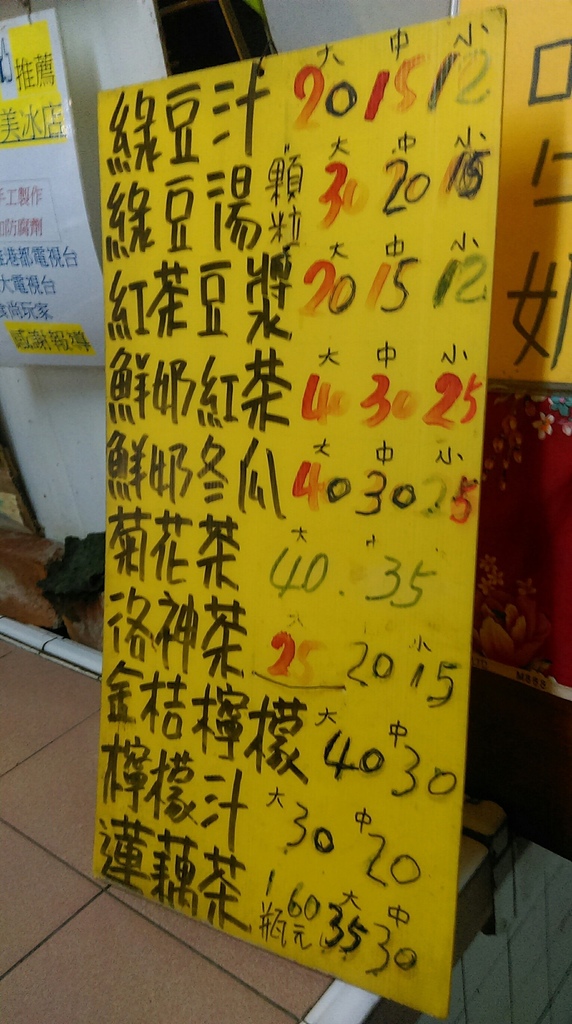 推薦
美冰店
手工製作
防腐劑
港都電視台
大電視台
尚玩家
感謝報導
大 中 小
綠豆汁 20 15 12
大 中 小
綠豆湯 顆粒 30 20 15
大 中 小
紅茶豆漿 20 15 12
大 中 小
鮮奶紅茶 40 30 25
大 中 小
鮮奶冬瓜 40 30 25
大 中
菊花茶 40. 35
大 小
洛神茶 25 20 15
大 中
金桔檸檬 40 30
大 中
檸檬汁 30 20
大 中
蓮藕茶 1瓶60元 35 30
牛
奶